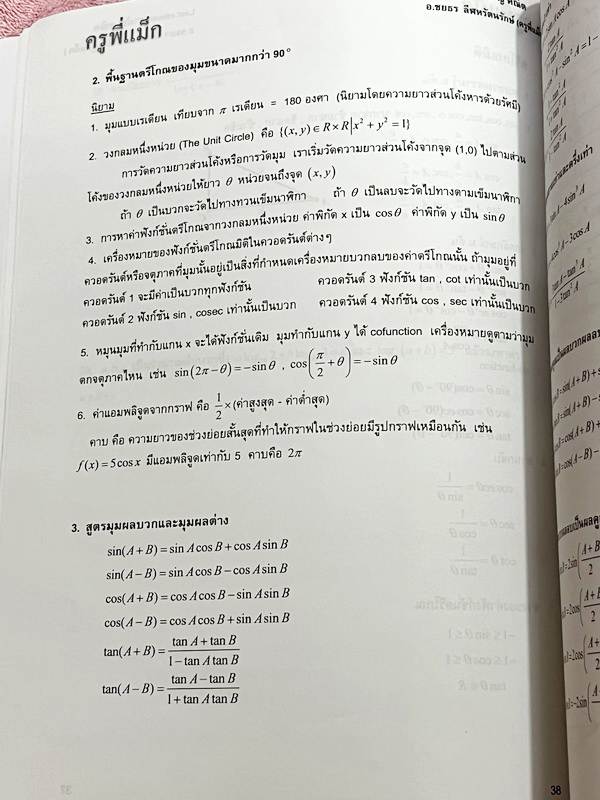 ครูพี่แม็ก
อ.ชยธร ลีฬหรัตนรักษ์ (ครูพี่แม็
2. พื้นฐานตรีโกณของมุมขนาดมากกว่า 90°
นิยาม
1. มุมแบบเรเดียน เทียบจาก π เรเดียน = 180 องศา (นิยามโดยความยาวส่วนโค้งหารด้วยรัศมี)
2. วงกลมหนึ่งหน่วย (The Unit Circle) คือ {(x, y) ∈ R × R | x² + y² = 1}
การวัดความยาวส่วนโค้งหรือการวัดมุม เราเริ่มวัดความยาวส่วนโค้งจากจุด (1,0) ไปตามส่วน
โค้งของวงกลมหนึ่งหน่วยให้ยาว θ หน่วยจนถึงจุด (x, y)
ถ้า θ เป็นบวกจะวัดไปทางทวนเข็มนาฬิกา ถ้า θ เป็นลบจะวัดไปทางตามเข็มนาฬิกา
3. การหาค่าฟังก์ชั่นตรีโกณจากวงกลมหนึ่งหน่วย ค่าพิกัด x เป็น cosθ ค่าพิกัด y เป็น sinθ
4. เครื่องหมายของฟังก์ชั่นตรีโกณมิติในควอดรันต์ต่างๆ
ควอดรันต์หรือจตุภาคที่มุมนั้นอยู่เป็นสิ่งที่กำหนดเครื่องหมายบวกลบของค่าตรีโกณนั้น ถ้ามุมอยู่ที่
ควอดรันต์ 1 จะมีค่าเป็นบวกทุกฟังก์ชัน ควอดรันต์ 3 ฟังก์ชัน tan , cot เท่านั้นเป็นบวก
ควอดรันต์ 2 ฟังก์ชัน sin , cosec เท่านั้นเป็นบวก ควอดรันต์ 4 ฟังก์ชัน cos , sec เท่านั้นเป็นบวก
5. หมุนมุมที่ทำกับแกน x จะได้ฟังก์ชั่นเดิม มุมทำกับแกน y ได้ cofunction เครื่องหมายดูตามว่ามุม
ตกจตุภาคไหน เช่น sin(2π − θ) = −sin θ , cos(π/2 + θ) = −sin θ
6. ค่าแอมพลิจูดจากกราฟ คือ 1/2 × (ค่าสูงสุด - ค่าต่ำสุด)
คาบ คือ ความยาวของช่วงย่อยสั้นสุดที่ทำให้กราฟในช่วงย่อยมีรูปกราฟเหมือนกัน เช่น
f(x) = 5cos x มีแอมพลิจูดเท่ากับ 5 คาบคือ 2π
3. สูตรมุมผลบวกและมุมผลต่าง
sin(A + B) = sin A cos B + cos A sin B
sin(A − B) = sin A cos B − cos A sin B
cos(A + B) = cos A cos B − sin A sin B
cos(A − B) = cos A cos B + sin A sin B
tan(A + B) = (tan A + tan B)/(1 − tan A tan B)
tan(A − B) = (tan A − tan B)/(1 + tan A tan B)
38